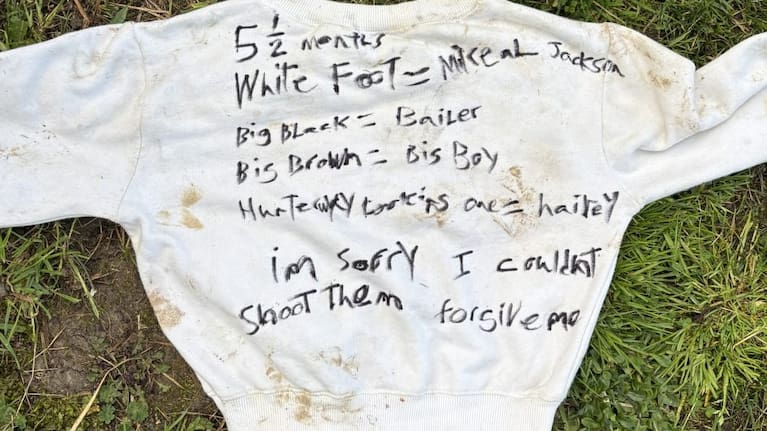 5 1/2 months
White Foot = Miceal Jackson
Big Black = Bailer
Big Brown = Big Boy
one = hailey
im sorry I couldnt
shoot them forgive me